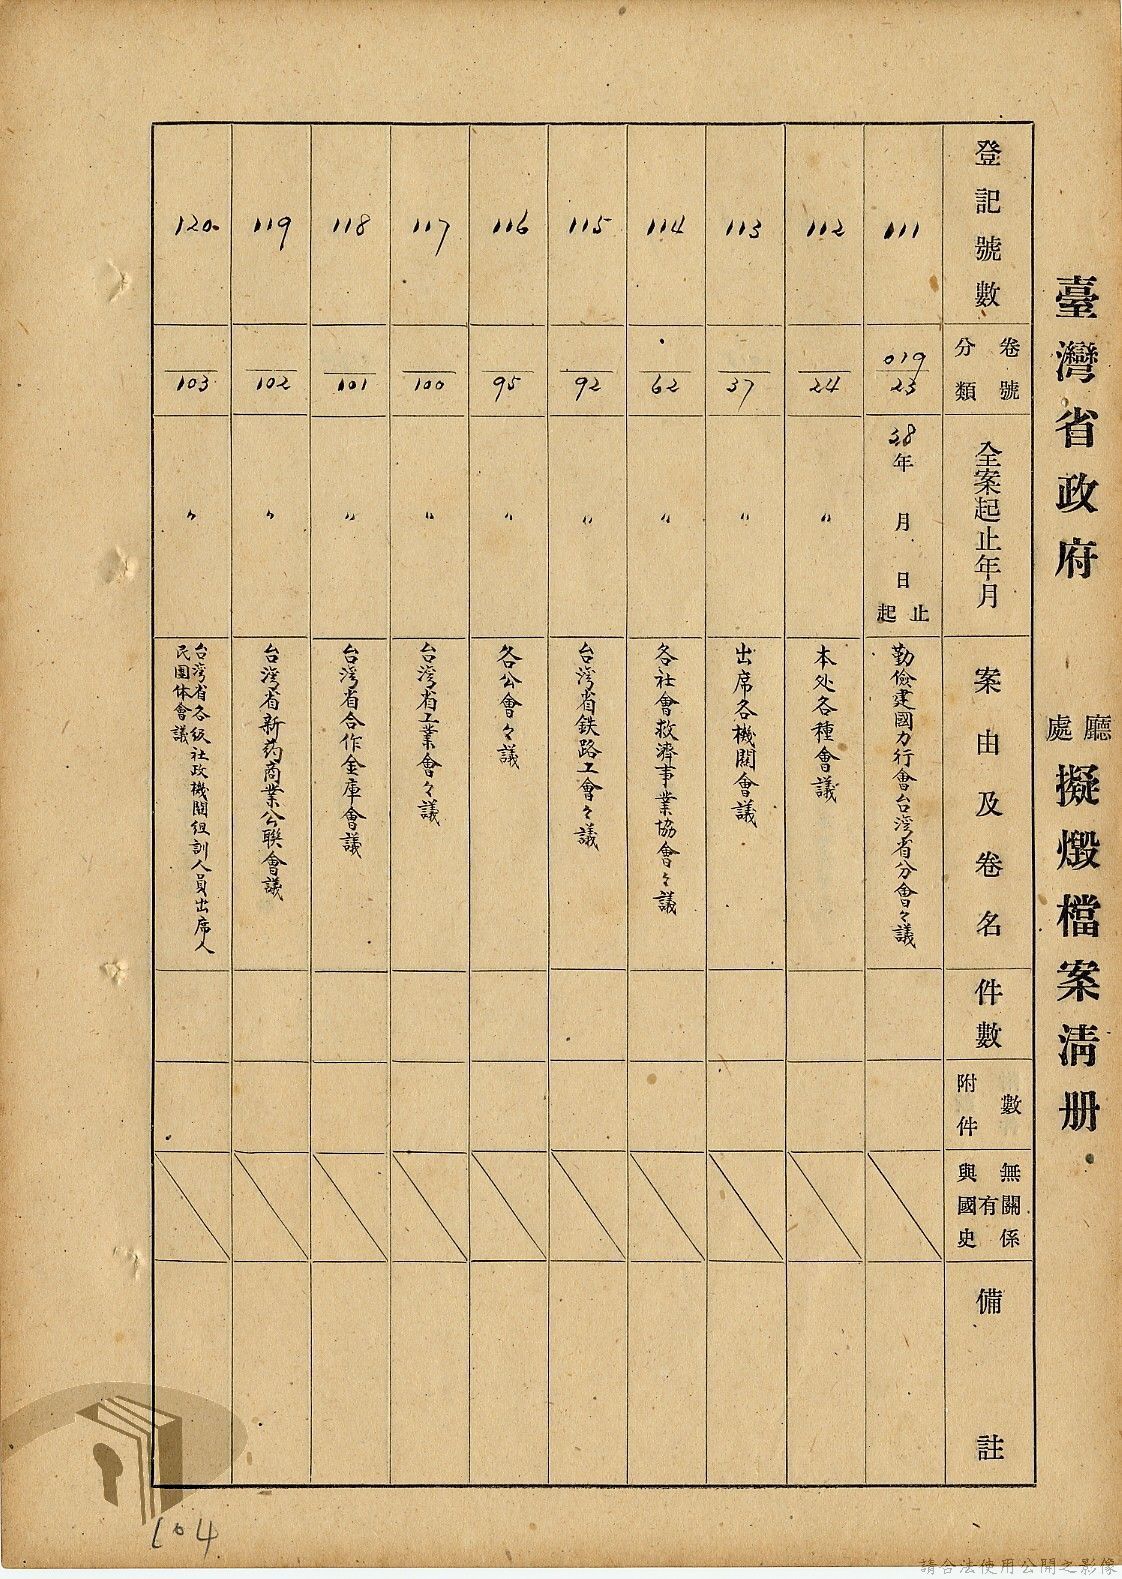 臺灣省政府 廳處 擬燬檔案清册
登記號數
分類 卷號
全案起止年月
案由及卷名
件數
附件 數
與國史 有 無關係
備註
111
019
23
38年 月 日 起 止
勤儉建國力行會台湾省分會々議
112
24
〃
本处各種會議
113
37
〃
出席各機関會議
114
62
〃
各社會救濟事業協會々議
115
92
〃
台湾省鉄路工會々議
116
95
〃
各公會々議
117
100
〃
台湾省工業會々議
118
101
〃
台湾省合作金庫會議
119
102
〃
台湾省新药商業公聯會議
120
103
〃
台湾省各級社政機関組訓人員出席人
民團体會議
104
請合法使用公開之影像